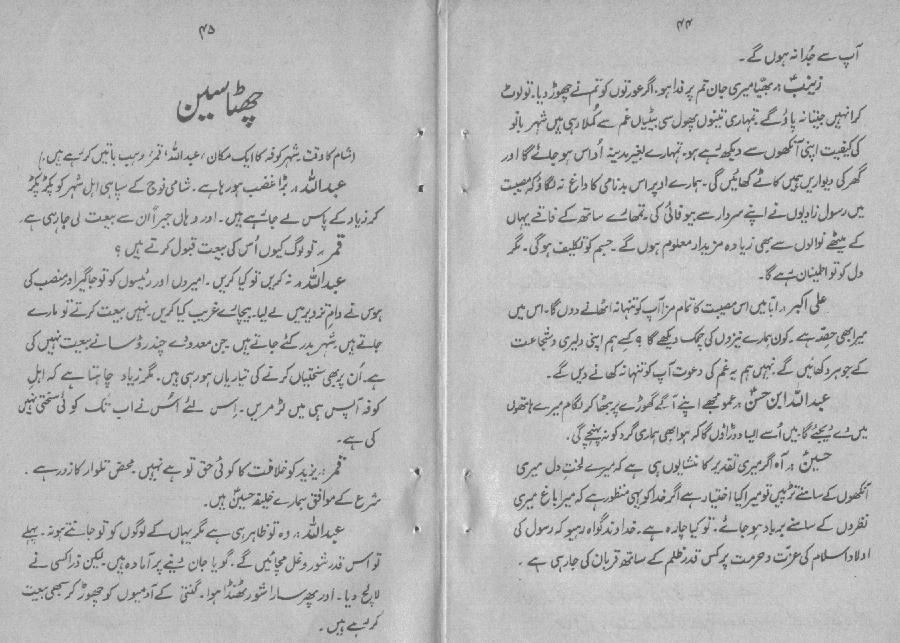 ۴۴
آپ سے جُدا نہ ہوں گے۔
زینبؑ:۔ بھیّا میری جان تم پر فدا ہو۔ اگر عورتوں کو تم نے چھوڑ دیا۔ تو لوٹ
کر انہیں جیتا نہ پاؤگے۔ تمہاری تینوں پھول سی بیٹیاں غم سے کُملا رہی ہیں شہر بانو
کی کیفیت اپنی آنکھوں سے دیکھ رہے ہو۔ تمہارے بغیر مدینہ اُداس ہو جائے گا اور
گھر کی دیواریں ہمیں کاٹے کھائیں گی۔ ہمارے اوپر اس بدنامی کا داغ نہ لگاؤ کہ مصیبت
میں رسول زادیوں نے اپنے سردار سے بیوفائی کی۔ تمھارے ساتھ کے فاقے یہاں
کے میٹھے نوالوں سے بھی زیادہ مزیدار معلوم ہوں گے۔ جسم کو تکلیف ہوگی۔ مگر
دل کو تو اطمینان رہے گا۔
علی اکبر:۔ ابّا میں اس مصیبت کا تمام مزا آپ کو تنہا نہ اٹھانے دوں گا۔ اس میں
میرا بھی حصّہ ہے۔ کون ہمارے نیزوں کی چمک دیکھے گا؟ کسے ہم اپنی دلیری و شجاعت
کے جوہر دکھائیں گے۔ نہیں ہم یہ غم کی دعوت آپ کو تنہا نہ کھانے دیں گے۔
عبداللہ ابن حسنؑ:۔ عمو مجھے اپنے آگے گھوڑے پر بٹھا کر لگام میرے ہاتھوں
میں دے دیجئے گا۔ میں اُسے ایسا دوڑاؤں گا کہ ہوا بھی ہماری گرد کو نہ پہنچے گی۔
حسینؑ:۔ آہ اگر میری تقدیر کا منشا یوں ہی ہے کہ میرے لختِ دل میری
آنکھوں کے سامنے تڑپیں تو میرا کیا اختیار ہے اگر خدا کو یہی منظور ہے کہ میرا باغ میری
نظروں کے سامنے برباد ہو جائے۔ تو کیا چارہ ہے۔ خداوند گواہ رہیو کہ رسول کی
اولاد اسلام کی عزّت و حرمت پر کس قدر ظلم کے ساتھ قربان کی جا رہی ہے۔
۴۵
چھٹا سین
(شام کا وقت۔ شہر کوفہ کا ایک مکان، عبداللہ، قمر، وہب باتیں کر رہے ہیں۔)
عبداللہ:۔ بڑا غضب ہو رہا ہے۔ شامی فوج کے سپاہی اہل شہر کو پکڑ پکڑ
کر زیاد کے پاس لے جا رہے ہیں۔ اور وہاں جبراً اُن سے بیعت لی جا رہی ہے
قمر:۔ تو لوگ کیوں اُس کی بیعت قبول کرتے ہیں؟
عبداللہ:۔ نہ کریں تو کیا کریں۔ امیروں اور رئیسوں کو تو جاگیر اور منصب کی
ہوس نے دامِ تزویر میں لے لیا۔ بیچارے غریب کیا کریں۔ نہیں بیعت کرتے تو مارے
جاتے ہیں۔ شہر بدر کئے جاتے ہیں۔ جن معدودے چند رؤسا نے بیعت نہیں کی
ہے۔ اُن پر بھی سختیاں کرنے کی تیاریاں ہو رہی ہیں۔ مگر زیاد چاہتا ہے کہ اہلِ
کوفہ آپس ہی میں لڑ مریں۔ اِس لئے اُس نے اب تک کوئی سختی نہیں
کی ہے۔
قمر:۔ یزید کو خلافت کا کوئی حق تو ہے نہیں۔ محض تلوار کا زور ہے۔
شرع کے موافق ہمارے خلیفہ حسینؑ ہیں۔
عبداللہ:۔ وہ تو ظاہر ہی ہے مگر یہاں کے لوگوں کو تو جانتے ہو نہ۔ پہلے
تو اس قدر شور و غل مچائیں گے۔ گویا جان دینے پر آمادہ ہیں۔ لیکن ذرا کسی نے
لالچ دیا۔ اور پھر سارا شور ٹھنڈا ہوا۔ گنتی کے آدمیوں کو چھوڑ کر سبھی بیعت
کر رہے ہیں۔